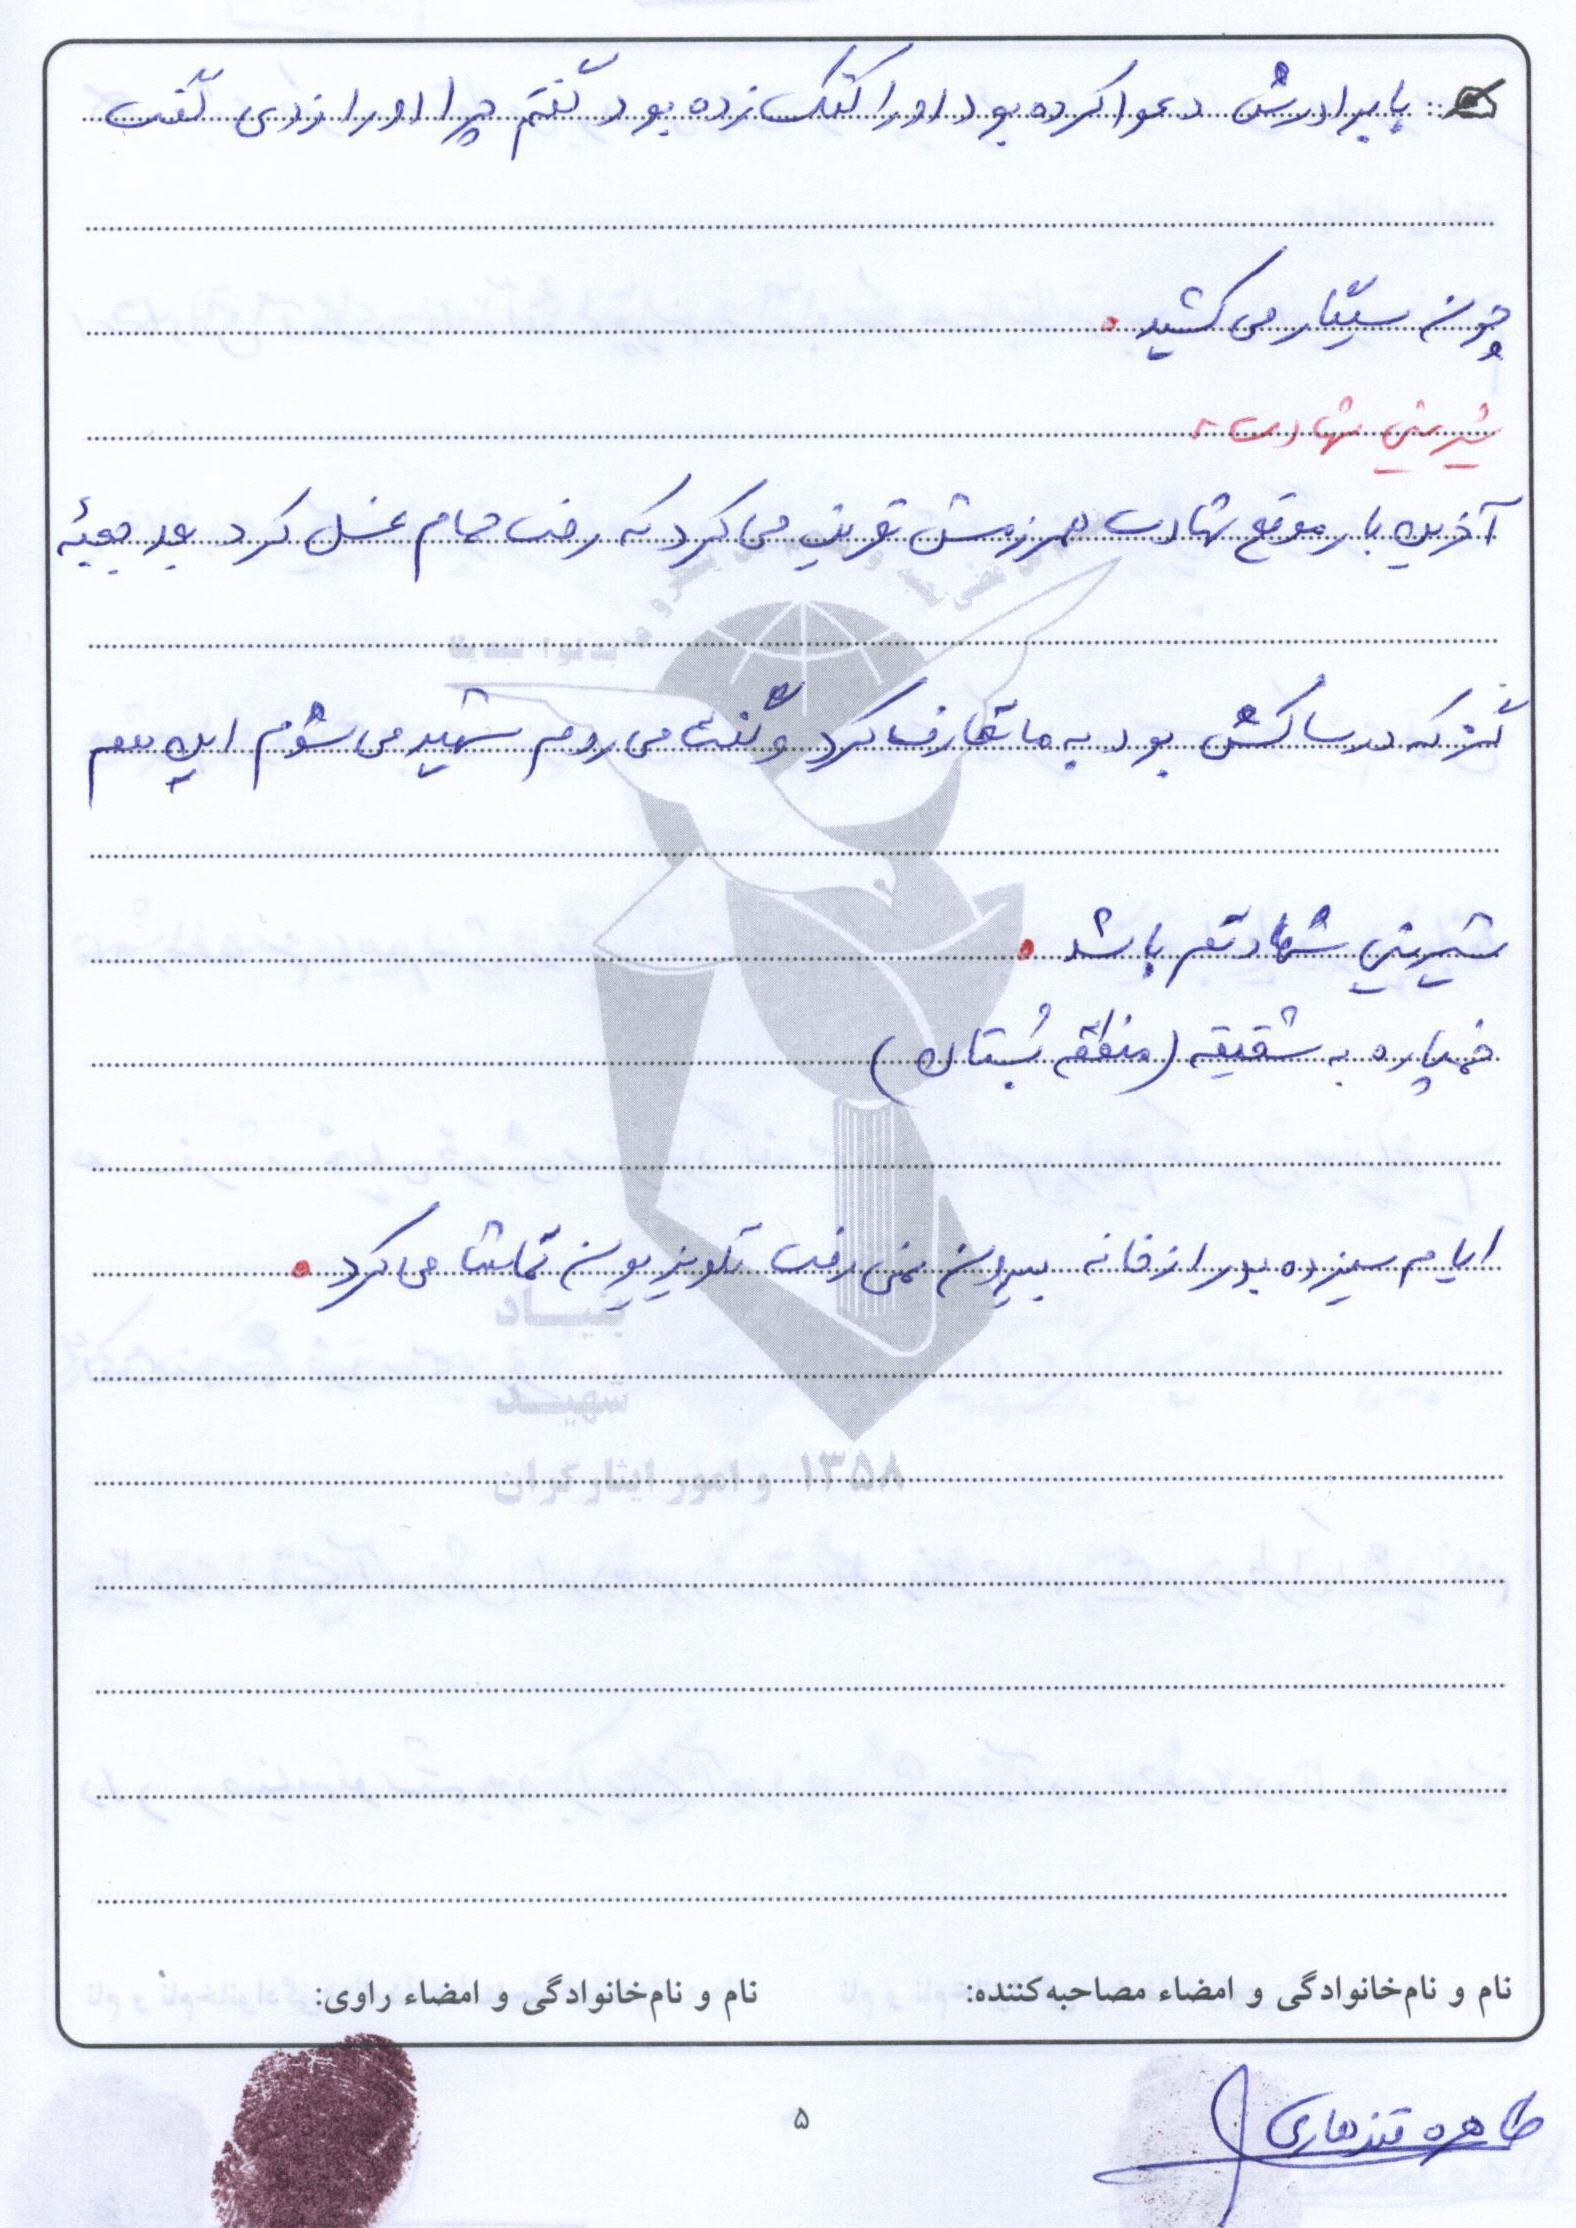 با برادرش دعوا کرده بود او را کتک زده بود گفتم چرا او را زدی گفت
چون سیگار می کشید.
شیرینی شهادت:
آخرین بار موقع شهادت همرزمش تعریف می کرد که رفت حمام غسل کرد بعد جعبه
گز که در ساکش بود به ما تعارف کرد و گفت می روم شهید می شوم این هم
شیرینی شهادتم باشد.
خمپاره به شقیقه (منطقه بُستان)
ایام سیزده بدر از خانه بیرون نمی رفت تلویزیون تماشا می کرد.
بنیاد
شهید
و امور ایثارگران ۱۳۵۸
نام و نام‌خانوادگی و امضاء مصاحبه‌کننده:
نام و نام‌خانوادگی و امضاء راوی:
طاهره قندهاری
۵